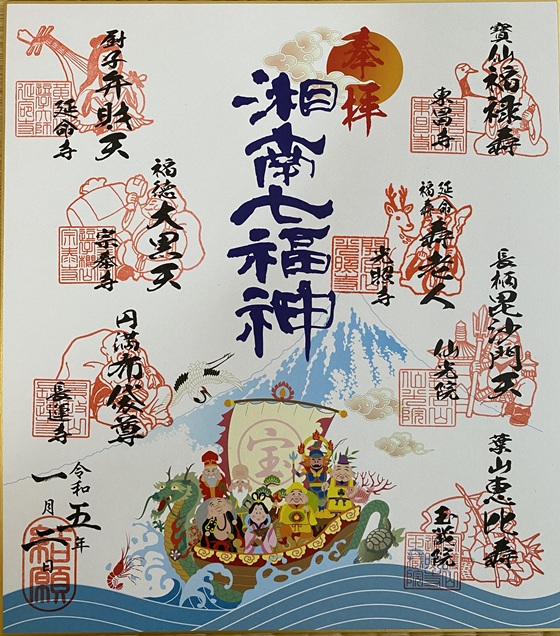 奉拝
湘南七福神
寳仙 福禄壽
東昌寺
延命
福寿
壽老人
光照寺
長柄 毘沙門天
仙光院
葉山 恵比壽
玉蔵院
厨子 弁財天
延命寺
福徳 大黒天
宗泰寺
円満 布袋尊
長運寺
令和五年
一月二日
宝
祈願